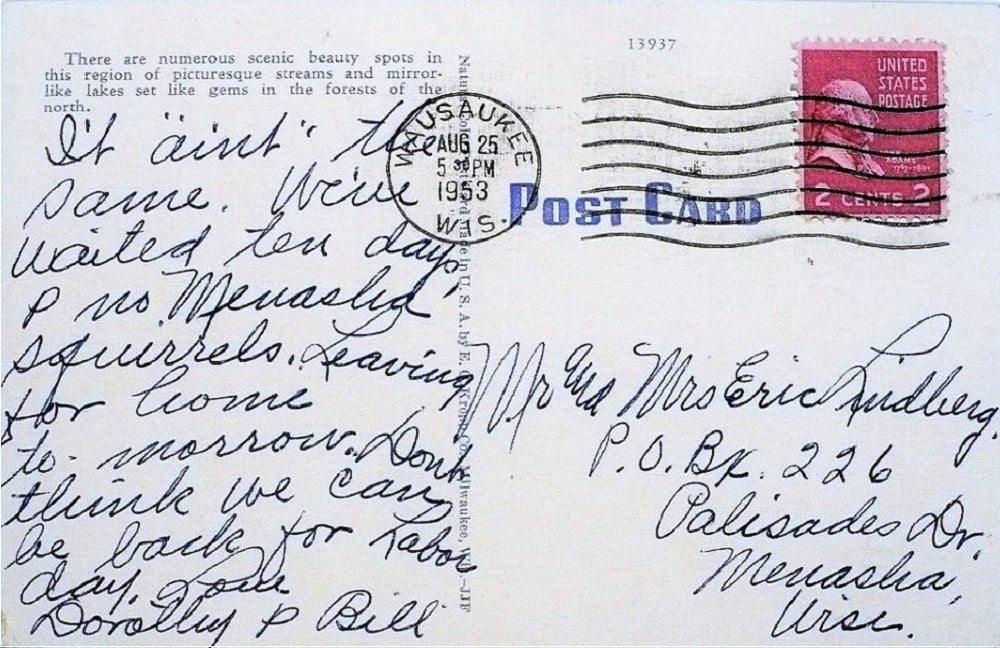 There are numerous scenic beauty spots in
this region of picturesque streams and mirror-
like lakes set like gems in the forests of the
north.
13937
UNITED
STATES
POSTAGE
JOHN
ADAMS
2 CENTS 2
WAUSAUKEE
AUG 25
5 30 PM
1953
WIS.
POST CARD
It "aint" the
same. We've
waited ten days
& no Menasha
squirrels. Leaving
for home
to-morrow. Dont
think we can
be back for Labor
day. Love
Dorothy & Bill
Made in U. S. A. by E. C. Kropp Co., Milwaukee, -JJF
Mr and Mrs Eric Lindberg,
P.O. Bx. 226
Palisades Dr.
Menasha,
Wisc.